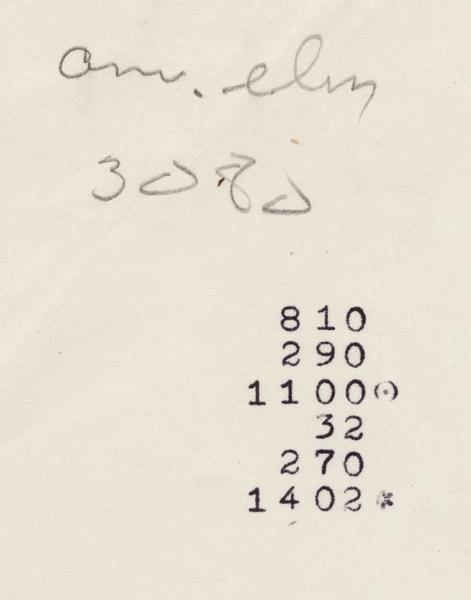 am. elm
3080
810
290
1100⊙
32
270
1402*